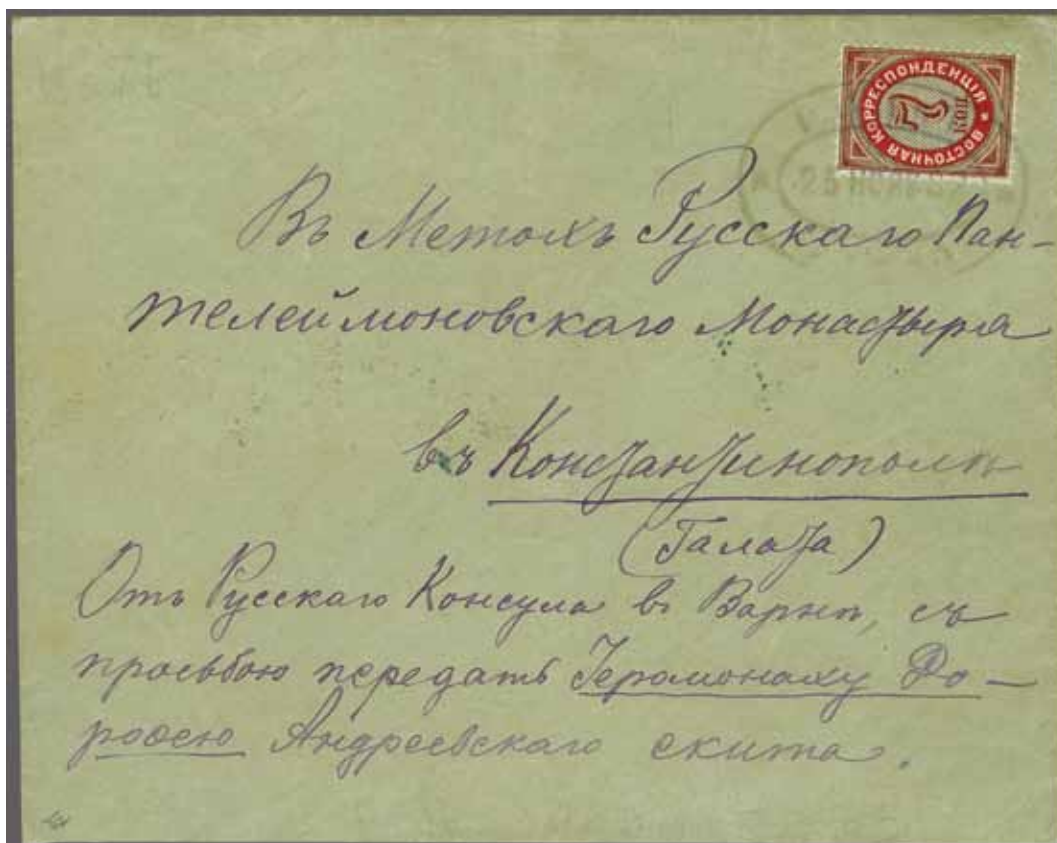 ВОСТОЧНАЯ КОРРЕСПОНДЕНЦІЯ
7 КОП
Въ Метохъ Русскаго Пан-
телеймоновскаго Монастыря
въ Константинополѣ
(Галата)
Отъ Русскаго Консула въ Варнѣ, съ
просьбою передать Іеромонаху До-
роѳею Андреевскаго скита.